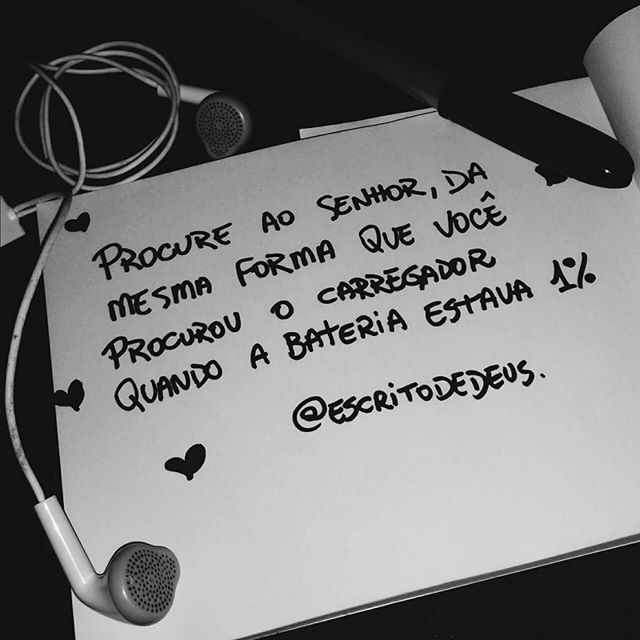 PROCURE AO SENHOR, DA
MESMA FORMA QUE VOCÊ
PROCUROU O CARREGADOR
QUANDO A BATERIA ESTAVA 1%
@ESCRITODEDEUS.